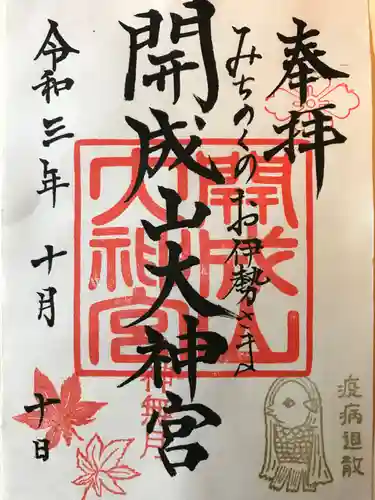 奉拝
みちのくのお伊勢さま
開成山大神宮
令和三年 十月 十日
開成山大神宮
神無月
疫病退散